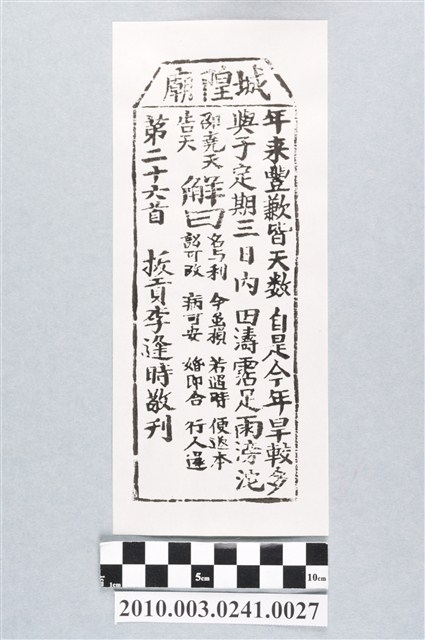 城隍廟
年来豐歉皆天数 自是今年旱較多
與子定期三日內 田濤霑足雨滂沱
邵堯夫
告天
解曰
名与利 今並損 若過時 便返本
訟可改 病可安 婚即合 行人還
第二十六首 拔貢李逢時敬刊
1cm 5cm 10cm
2010.003.0241.0027